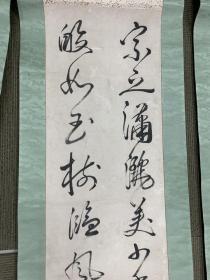 宗之瀟灑美少
皎如玉樹臨風